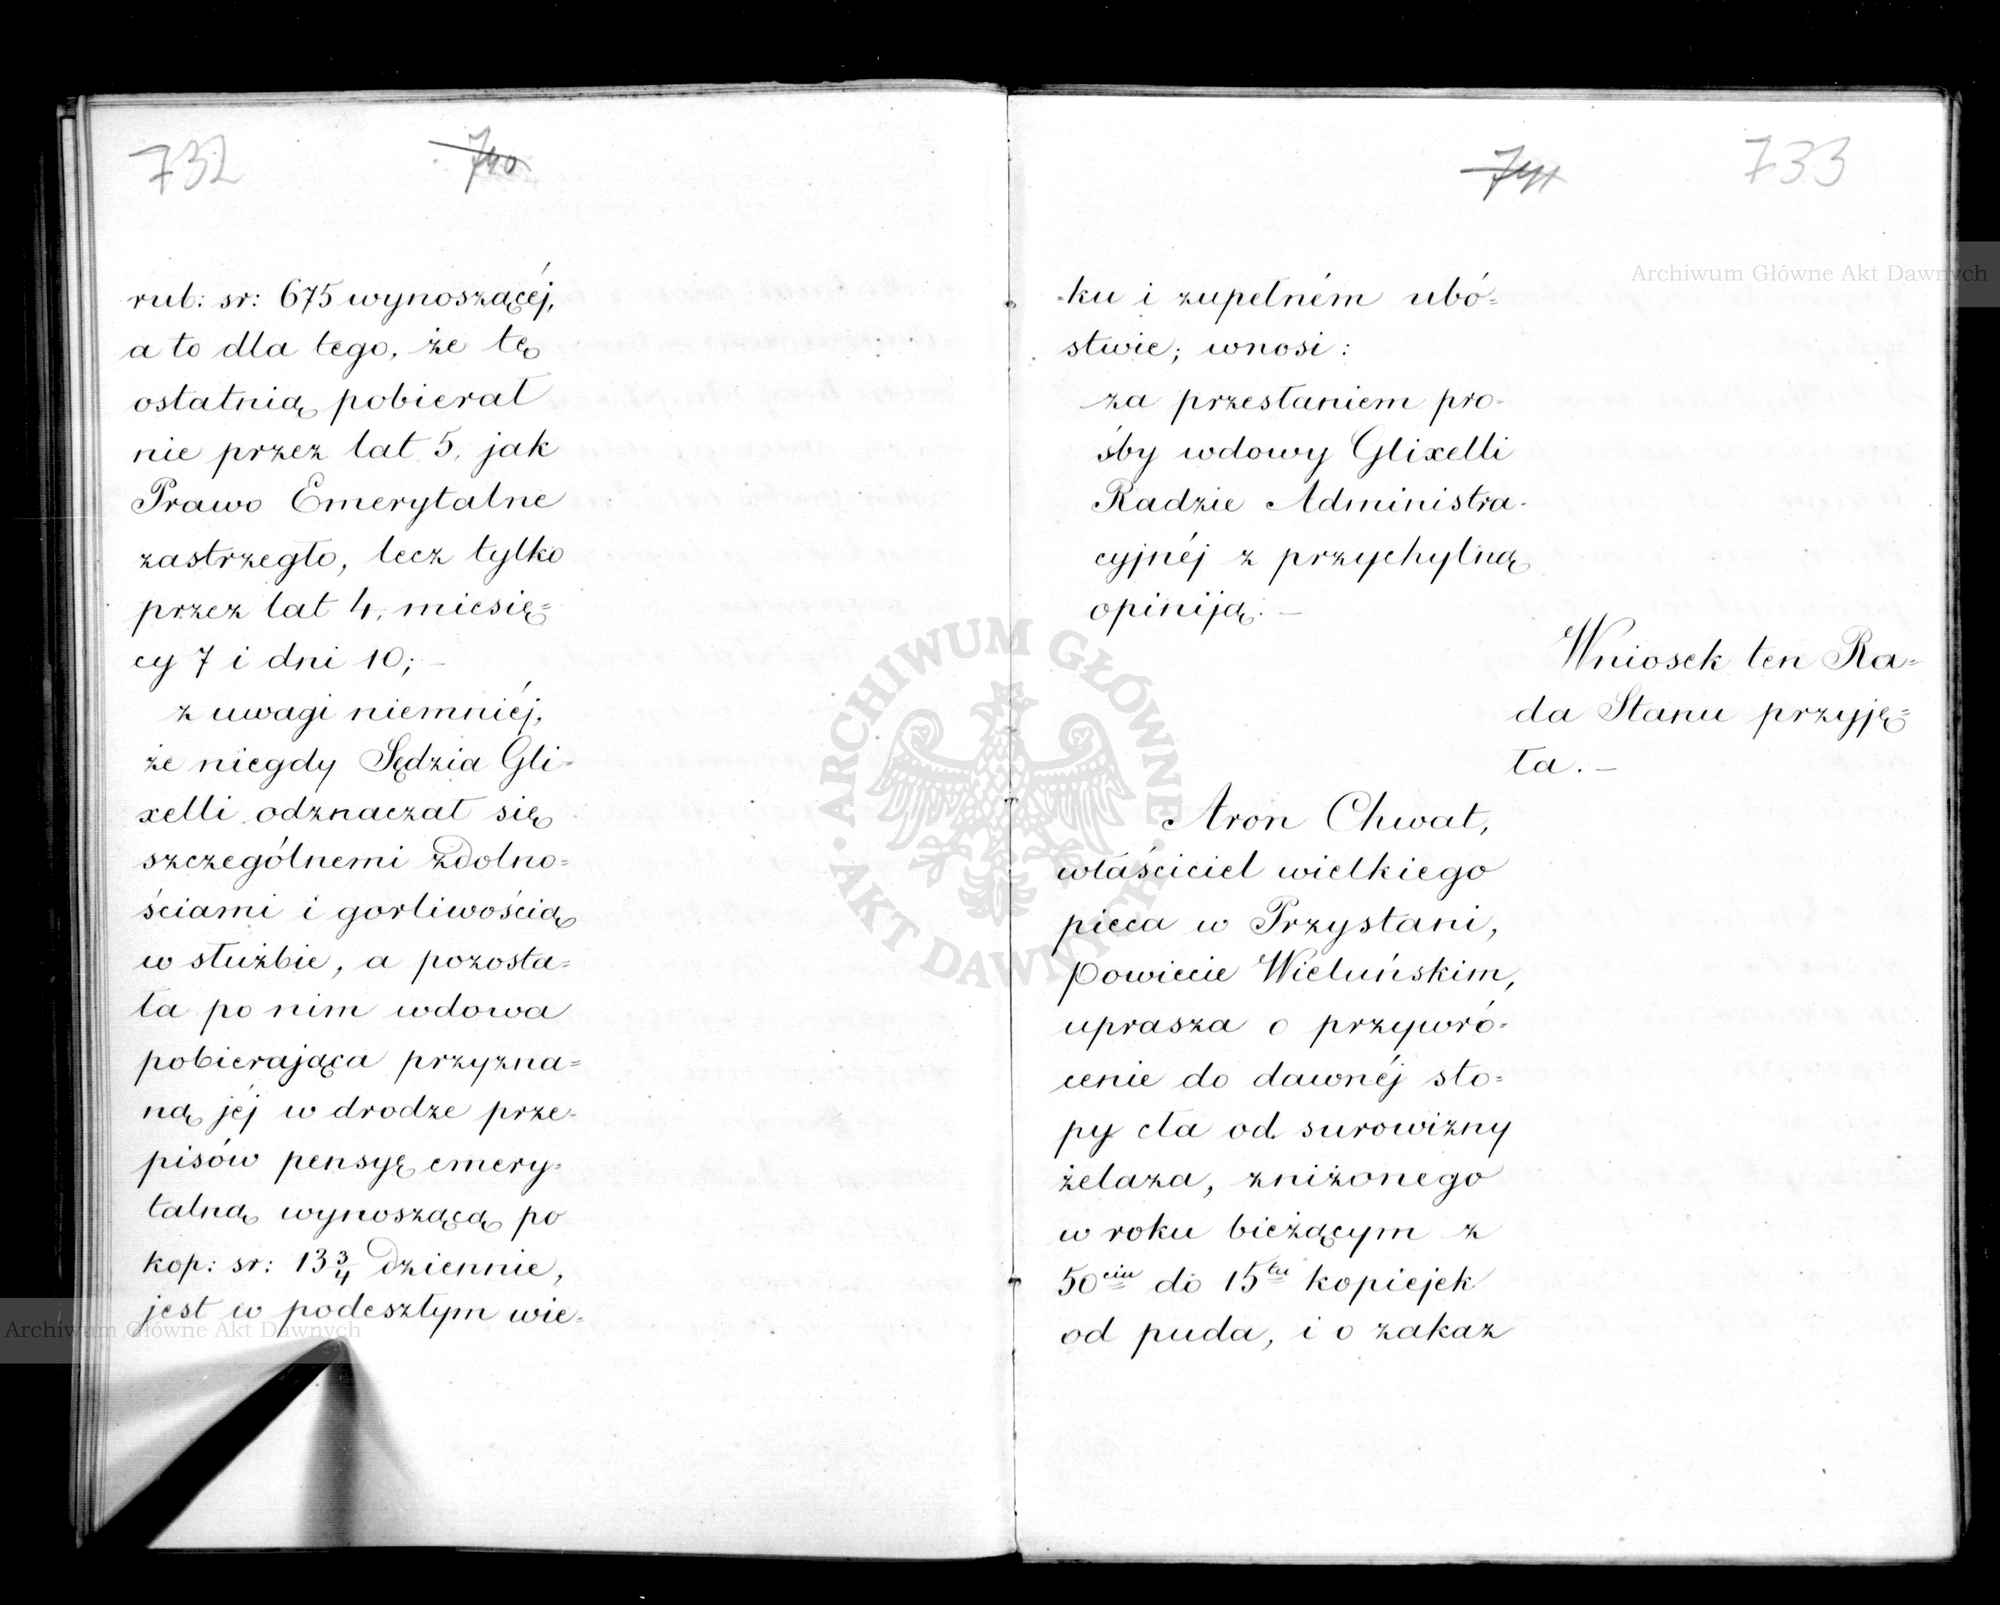 732
740
rub: sr: 675 wynoszącéj,
a to dla tego, że tę
ostatnią pobierał
nie przez lat 5, jak
Prawo Emerytalne
zastrzegło, lecz tylko
przez lat 4, miesię=
cy 7 i dni 10; –
z uwagi niemniéj,
że niegdy Sędzia Gli-
xelli odznaczał się
szczególnemi zdolno=
ściami i gorliwością
w służbie, a pozosta=
ła po nim wdowa
pobierająca przyzna=
ną jéj w drodze prze-
pisów pensyę emery-
talną wynoszącą po
kop: sr: 13 3/4 dziennie,
jest w podeszłym wie-
741
733
-ku i zupełném ubó=
stwie; wnosi:
za przesłaniem pro-
śby wdowy Glixelli
Radzie Administra-
cyjnéj z przychylną
opiniją. –
Wniosek ten Ra=
da Stanu przyję=
ła. –
Aron Chwat,
właściciel wielkiego
pieca w Przystani,
Powiecie Wieluńskim,
uprasza o przywró-
cenie do dawnéj sto=
py cła od surowizny
żelaza, zniżonego
w roku bieżącym z
50ciu do 15tu kopiejek
od puda, i o zakaz
Archiwum Główne Akt Dawnych
Archiwum Główne Akt Dawnych
ARCHIWUM GŁÓWNE · AKT DAWNYCH ·